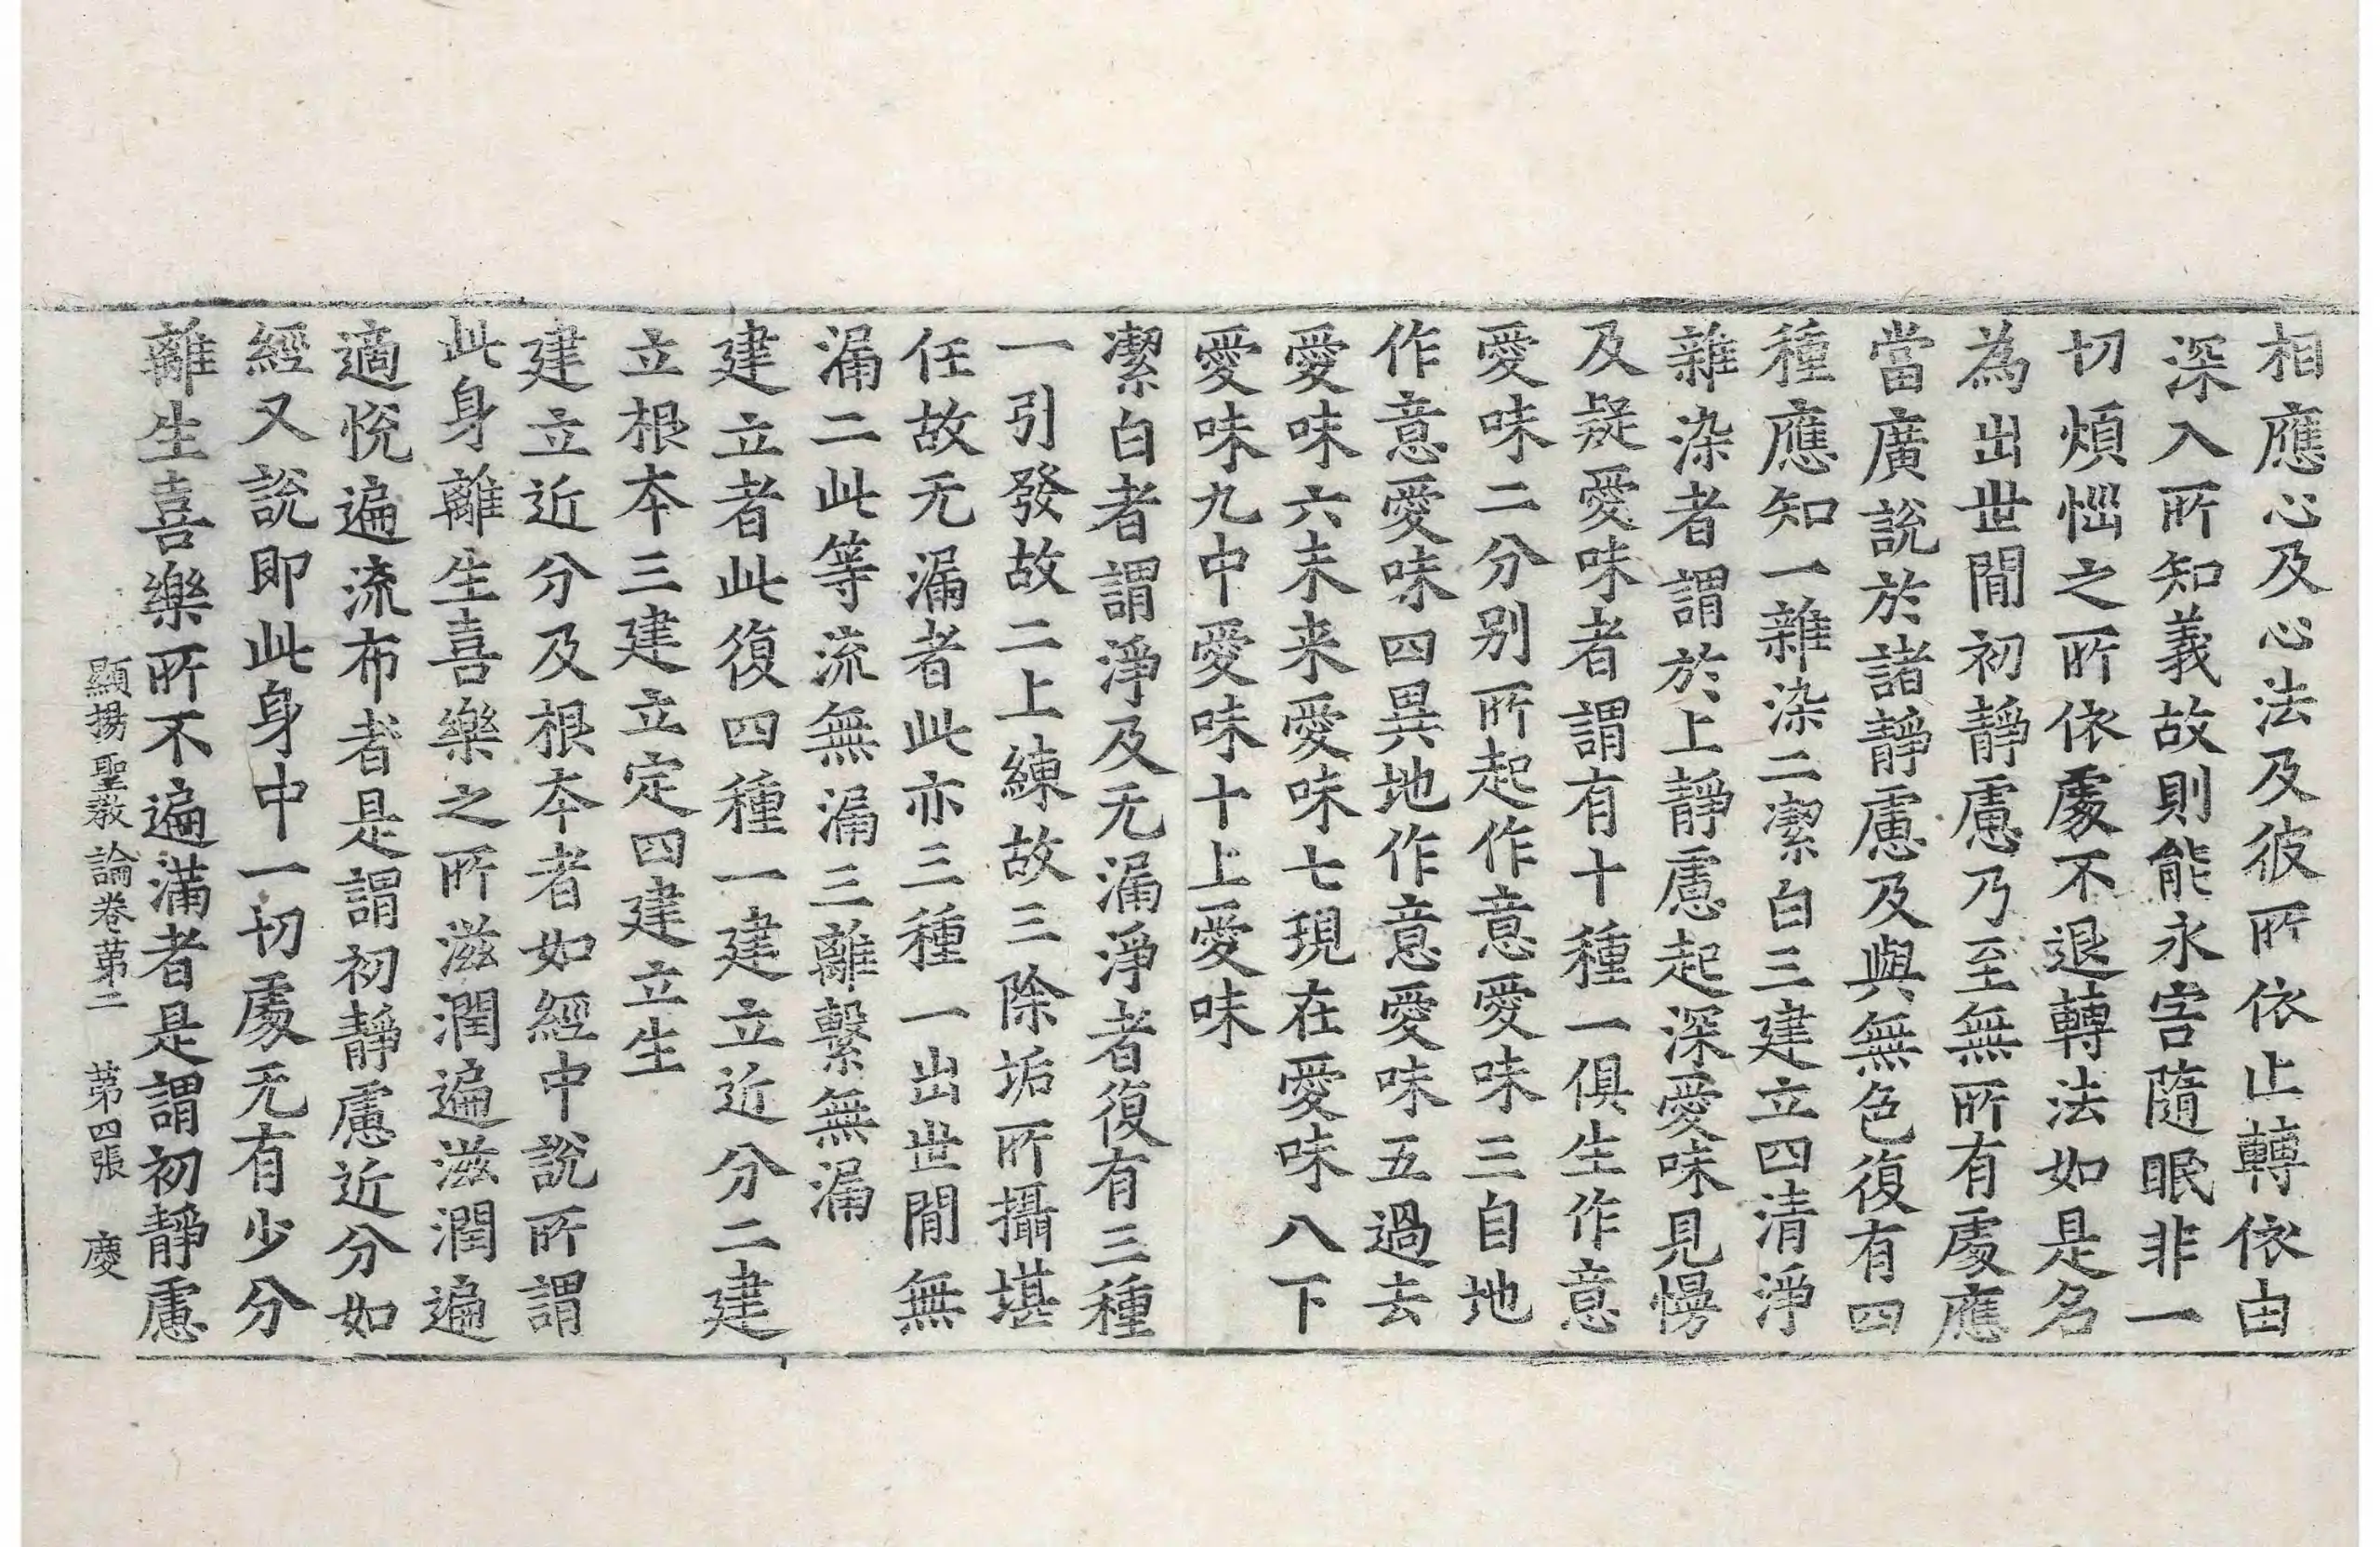 相應心及心法及彼所依止轉依由
深入所知義故則能永害隨眠非一
切煩惱之所依處不退轉法如是名
為出世閒初靜慮乃至無所有處應
當廣說於諸靜慮及與無色復有四
種應知一雜染二潔白三建立四清淨
雜染者謂於上靜慮起深愛味見慢
及疑愛味者謂有十種一俱生作意
愛味二分别所起作意愛味三自地
作意愛味四異地作意愛味五過去
愛味六未来愛味七現在愛味八下
愛味九中愛味十上愛味
潔白者謂淨及无漏淨者復有三種
一引發故二上練故三除垢所攝堪
任故无漏者此亦三種一出世閒無
漏二此等流無漏三離繫無漏
建立者此復四種一建立近分二建
立根本三建立定四建立生
建立近分及根本者如經中說所謂
此身離生喜樂之所滋潤遍滋潤遍
適悅遍流布者是謂初靜慮近分如
經又說即此身中一切處无有少分
離生喜樂所不遍滿者是謂初靜慮
顯揚聖教論卷苐二 苐四張 慶